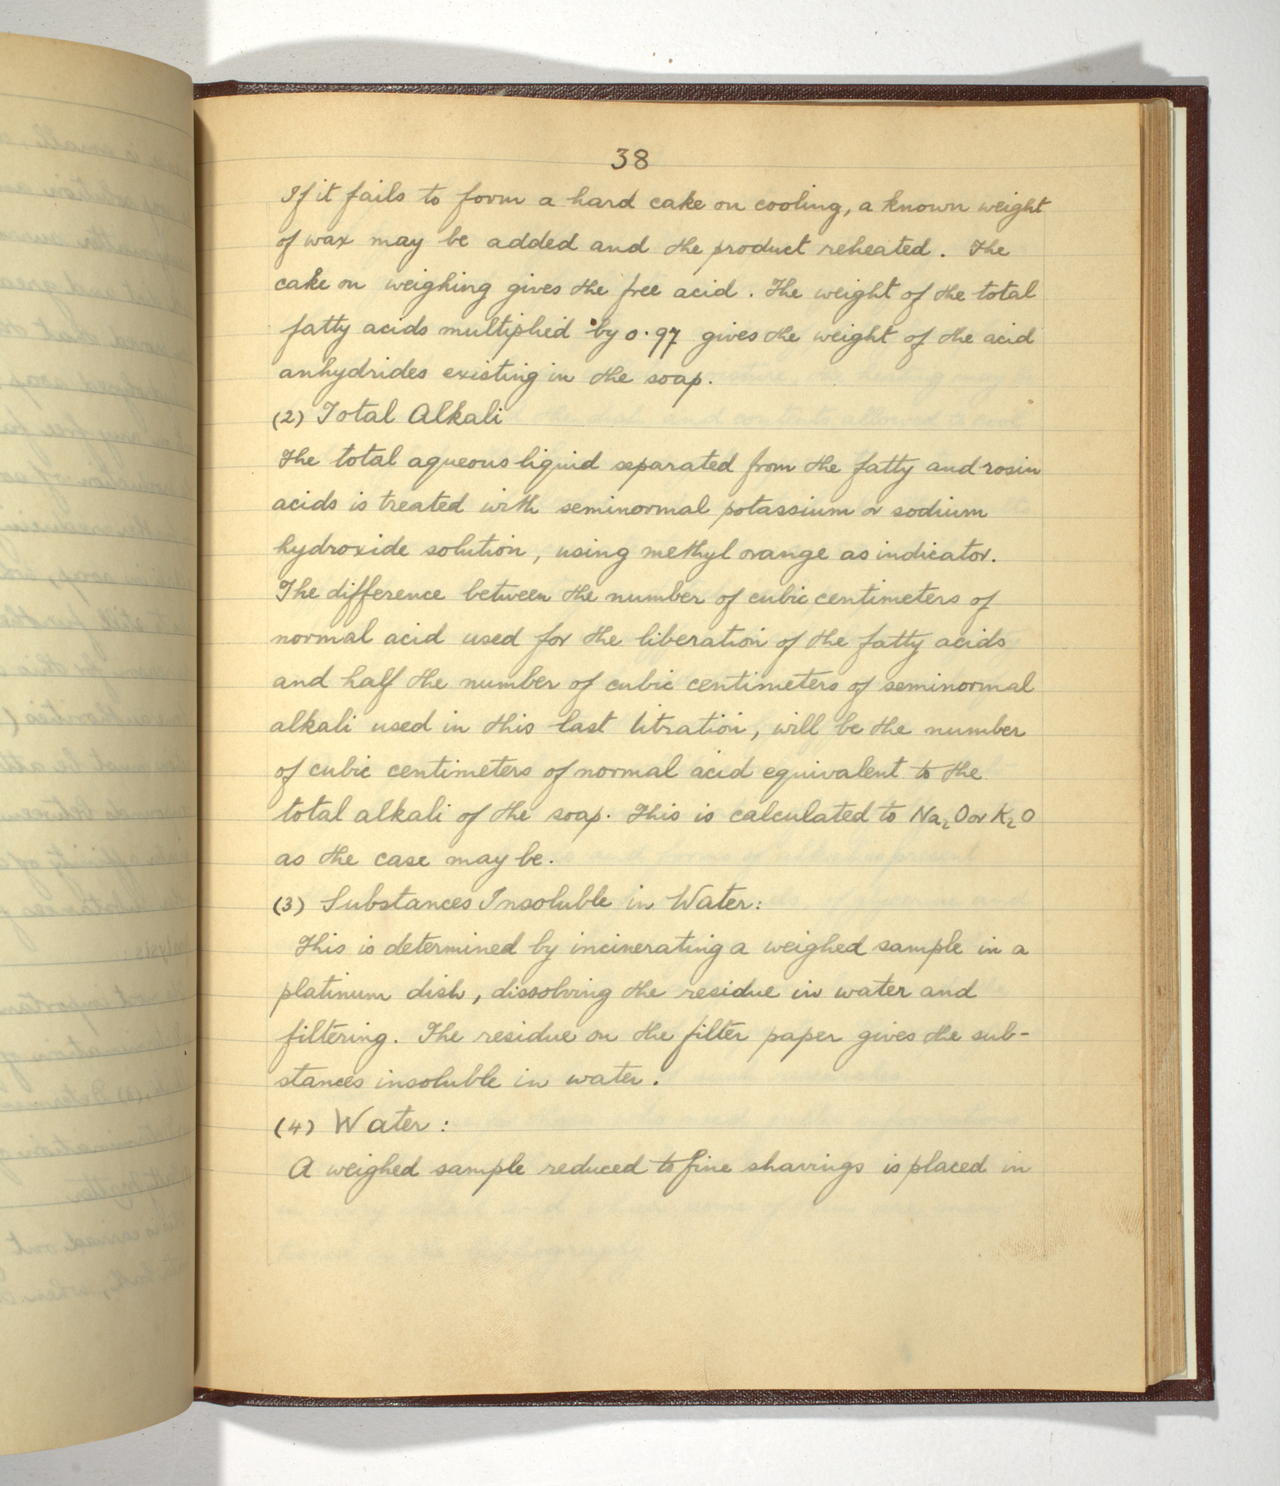 38
If it fails to form a hard cake on cooling, a known weight
of wax may be added and the product reheated. The
cake on weighing gives the free acid. The weight of the total
fatty acids multiplied by 0.97 gives the weight of the acid
anhydrides existing in the soap.
(2) Total Alkali
The total aqueous liquid separated from the fatty and rosin
acids is treated with seminormal potassium or sodium
hydroxide solution, using methyl orange as indicator.
The difference between the number of cubic centimeters of
normal acid used for the liberation of the fatty acids
and half the number of cubic centimeters of seminormal
alkali used in this last titration, will be the number
of cubic centimeters of normal acid equivalent to the
total alkali of the soap. This is calculated to Na₂O or K₂O
as the case may be.
(3) Substances Insoluble in Water:
This is determined by incinerating a weighed sample in a
platinum dish, dissolving the residue in water and
filtering. The residue on the filter paper gives the sub-
stances insoluble in water.
(4) Water:
A weighed sample reduced to fine shavings is placed in